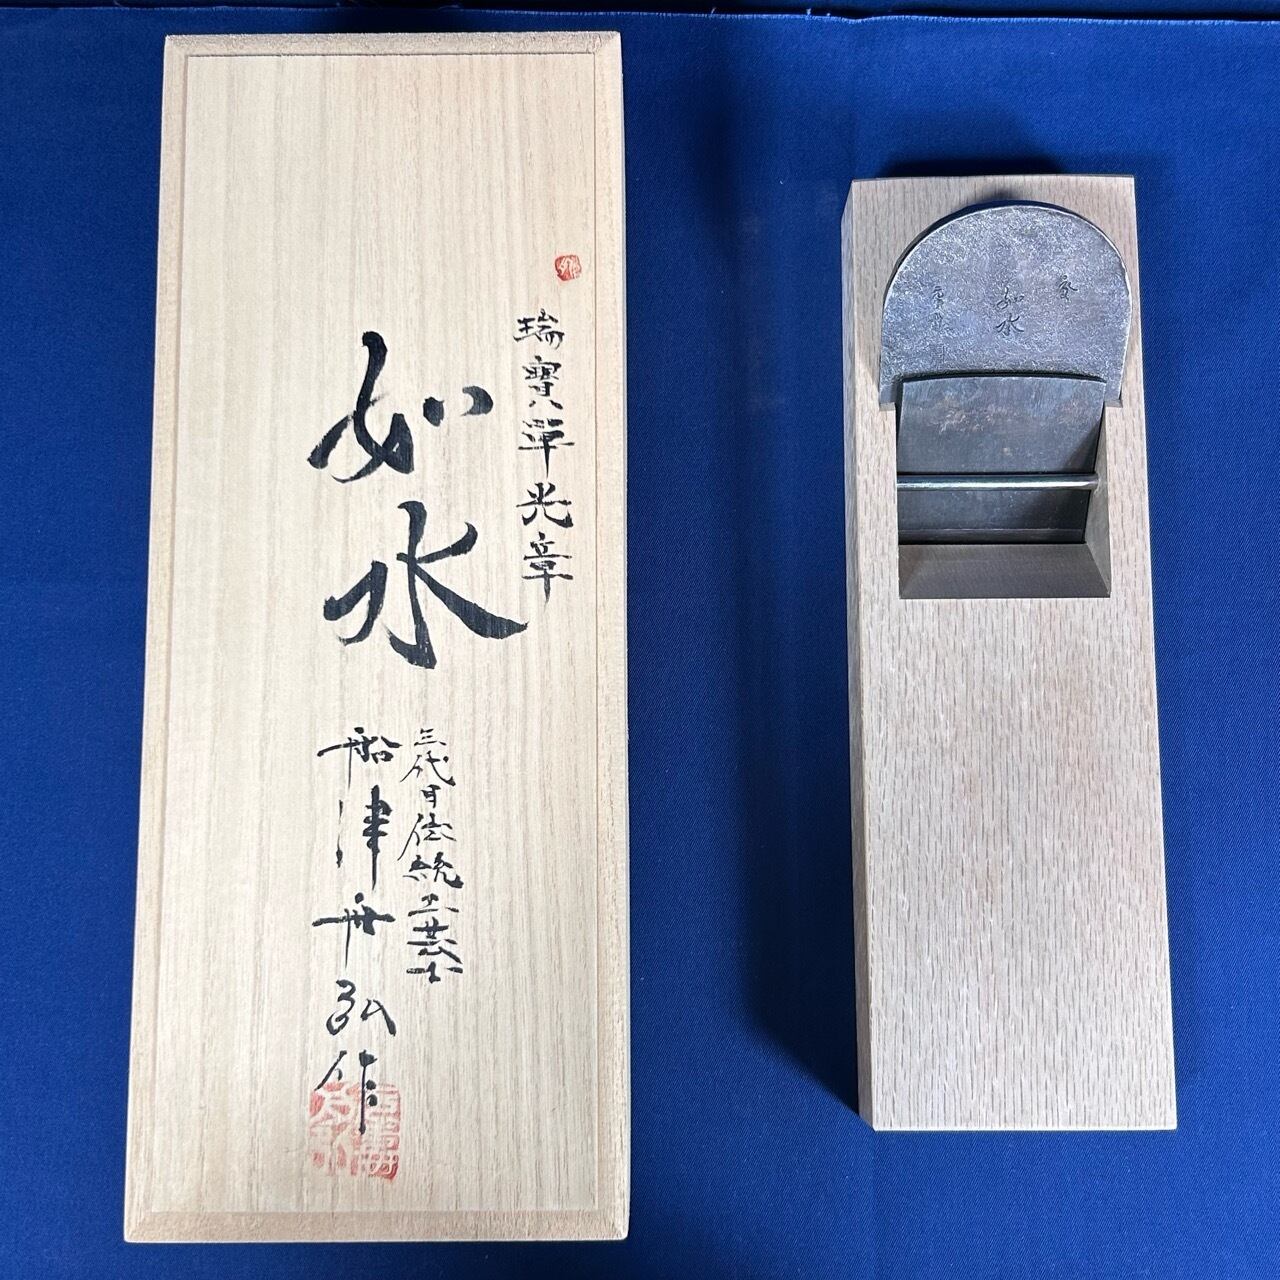 瑞寶單光章
如水
三代目伝統工芸士
船津舟弘作
如水